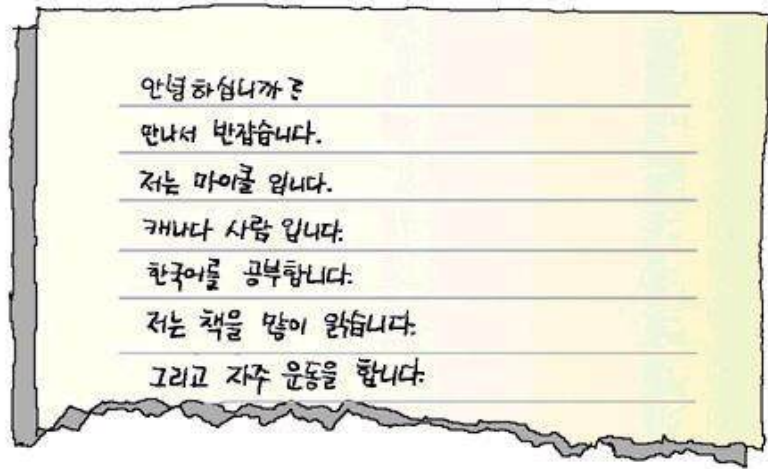 안녕하십니까?
만나서 반갑습니다.
저는 마이클 입니다.
캐나다 사람 입니다.
한국어를 공부합니다.
저는 책을 많이 읽습니다.
그리고 자주 운동을 합니다.